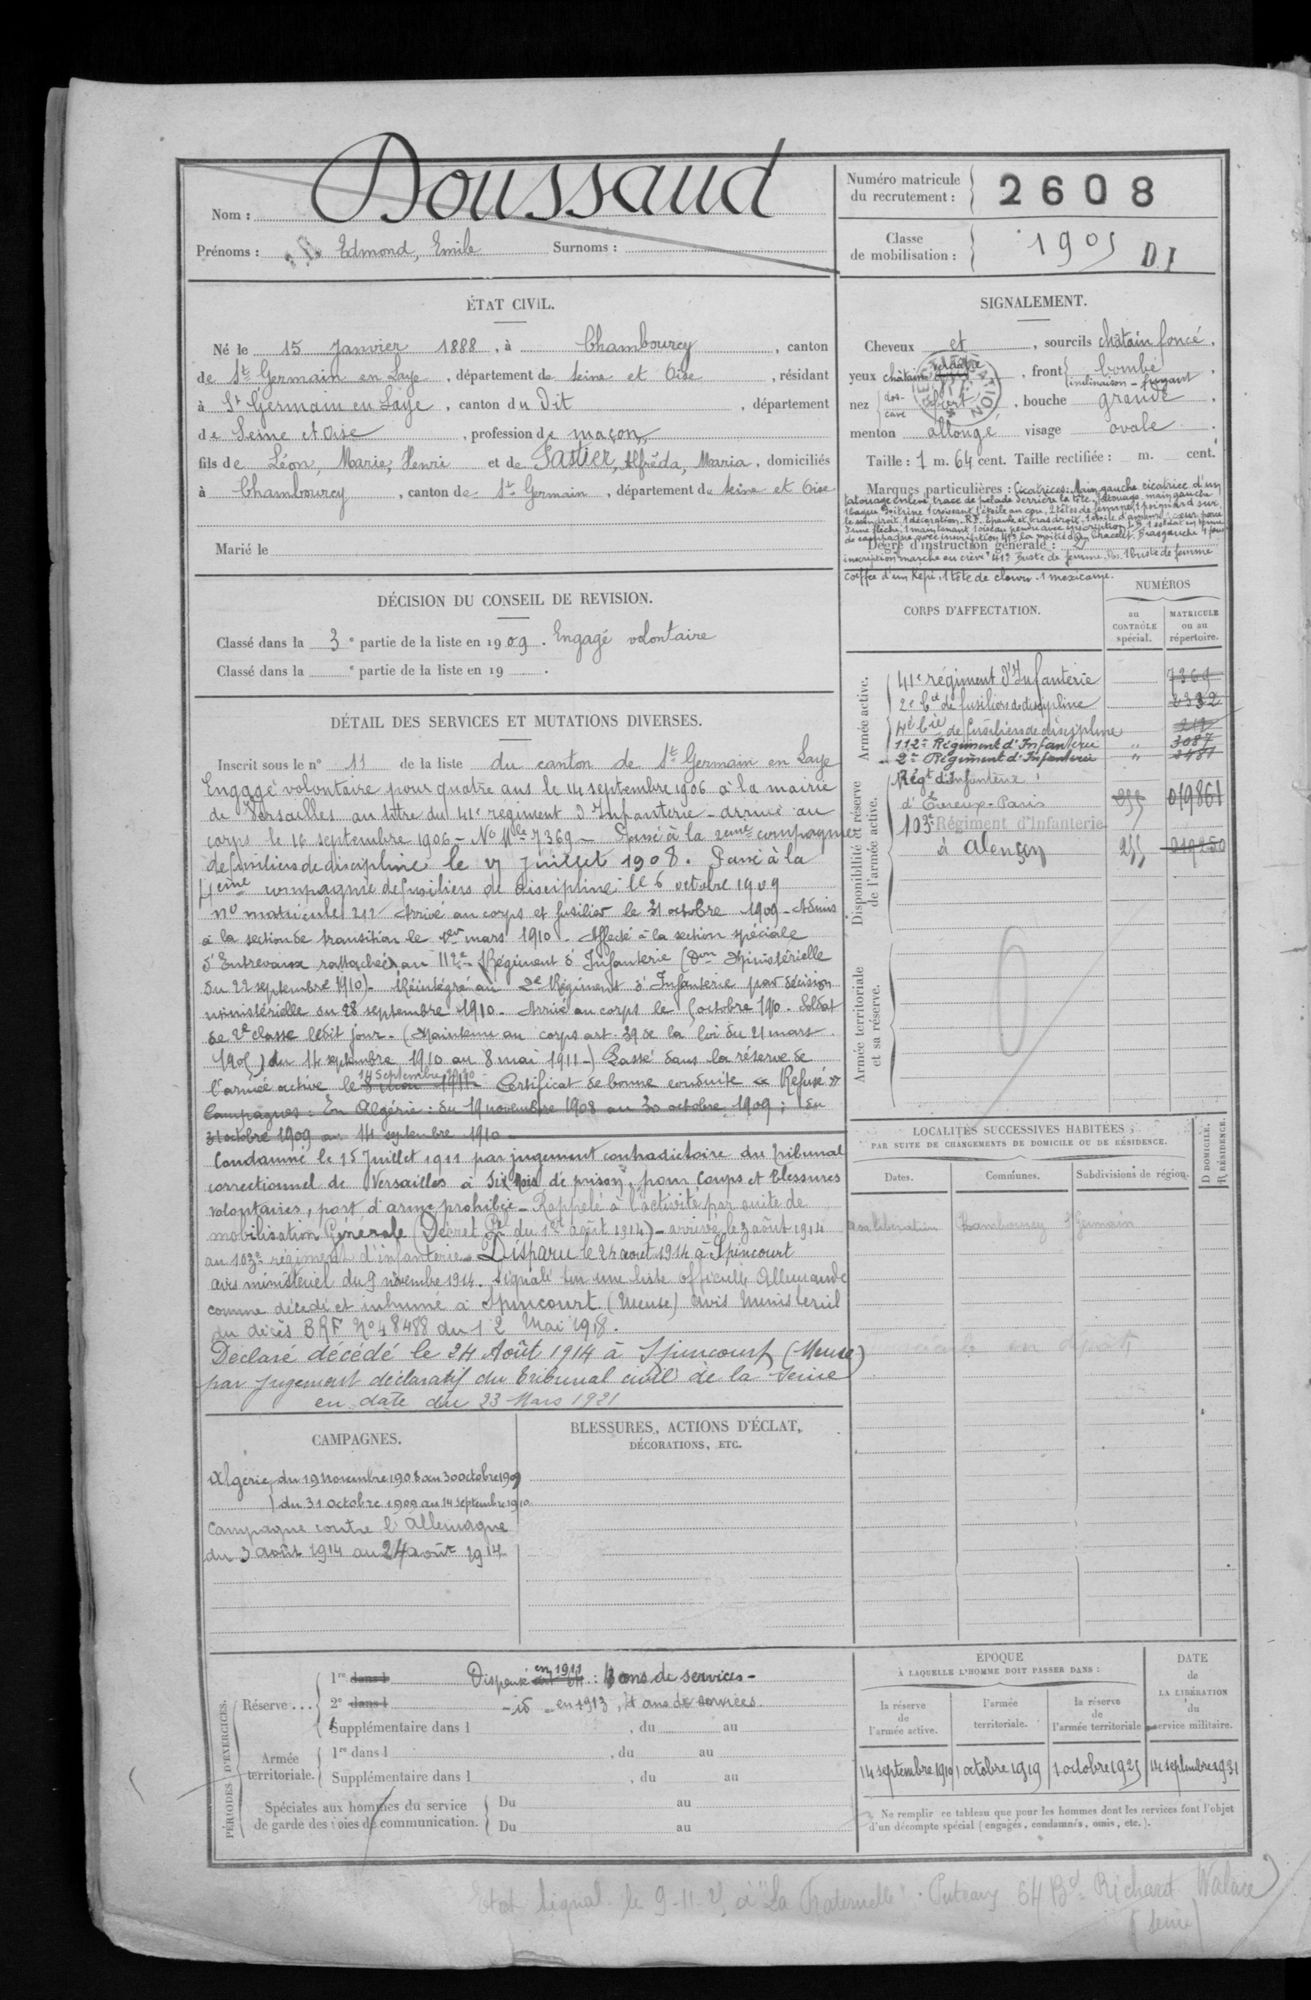 Nom : Doussaud
Prénoms : Edmond, Emile Surnoms :
Numéro matricule du recrutement : 2608
Classe de mobilisation : 1905 D.I
ÉTAT CIVIL.
Né le 15 Janvier 1888, à Chambourcy, canton
de St Germain en Laye, département de Seine et Oise, résidant
à St Germain en Laye, canton du Dit, département
de Seine et Oise, profession de maçon,
fils de Léon, Marie, Henri et de Fastier, Alfréda, Maria, domiciliés
à Chambourcy, canton de St Germain, département de Seine et Oise
Marié le
SIGNALEMENT.
Cheveux et, sourcils châtain foncé.
yeux châtain verdâtre, front bombé
inclinaison - fuyant
nez dos- cave, bouche grande
menton allongé visage ovale.
Taille : 1 m. 64 cent. Taille rectifiée : m. cent.
Marques particulières : Cicatrices : Main gauche cicatrice d'un
tatouage enlevé trace de pelade derrière la tête, tatouage main gauche
1 bague Poitrine 1 croissant 1 étoile au cou, 2 têtes de femme, 1 poignard sur
Degré d'instruction générale : 2
inscription marche ou crève 413 Buste de femme 1 buste de femme
coiffée d'un Képi, 1 tête de clown. 1 mexicaine.
DÉCISION DU CONSEIL DE REVISION.
Classé dans la 3e partie de la liste en 1909. Engagé volontaire
Classé dans la e partie de la liste en 19 .
DÉTAIL DES SERVICES ET MUTATIONS DIVERSES.
Inscrit sous le n° 11 de la liste du canton de St Germain en Laye
Engagé volontaire pour quatre ans le 14 septembre 1906 à la mairie
de Versailles au titre du 41e régiment d'Infanterie - arrivé au
corps le 16 septembre 1906 - No Mle 7369 - Passé à la 2eme compagnie
de fusiliers de discipline le 17 Juillet 1908. Passé à la
4eme compagnie de fusiliers de discipline le 6 octobre 1909
no matricule 212 Arrivé au corps et fusilier le 31 octobre 1909 - Admis
à la section de transition le 1er mars 1910. Affecté à la section spéciale
d'Entrevaux rattachée au 112e Régiment d'Infanterie (Don Ministérielle
du 22 septembre 1910). Réintégré au 2e Régiment d'Infanterie par décision
ministérielle du 28 septembre 1910. Arrivé au corps le 5 octobre 1910. Soldat
de 2e classe ledit jour. (Maintenu au corps art. 39 de la loi du 21 mars
1905) du 14 septembre 1910 au 8 mai 1911 -) Passé dans la réserve de
l'armée active le 14 Septembre 1910 Certificat de bonne conduite « Refusé »
Campagnes : En Algérie : du 19 novembre 1908 au 30 octobre 1909 ; du
31 octobre 1909 au 14 septembre 1910
Condamné le 15 Juillet 1911 par jugement contradictoire du tribunal
correctionnel de Versailles à Six mois de prison, pour Coups et blessures
volontaires, port d'arme prohibée - Rappelé à l'activité par suite de
mobilisation Générale (Décret Pt du 1er août 1914) - arrivé le 3 août 1914
au 103e régiment d'infanterie - Disparu le 24 août 1914 à Spincourt
avis ministériel du 9 novembre 1914. Signalé sur une liste officielle Allemande
comme décédé et inhumé à Spincourt (Meuse) avis Ministériel
du décès BRF No 48488 du 12 Mai 1918.
Déclaré décédé le 24 Août 1914 à Spincourt (Meuse)
par jugement déclaratif du tribunal civil de la Seine
en date du 23 Mars 1921
CORPS D'AFFECTATION.
NUMÉROS
au CONTRÔLE spécial.
MATRICULE ou au répertoire.
Armée active.
41e régiment d'Infanterie 7369
2e Cie de fusiliers de discipline 2332
4e Cie de fusiliers de discipline 212
112e Régiment d'Infanterie " 3087
2e Régiment d'Infanterie "
Disponibilité et réserve de l'armée active.
Régt d'Infanterie
d'Evreux-Paris 019861
103e Régiment d'Infanterie
à Alençon 255
Armée territoriale et sa réserve.
LOCALITÉS SUCCESSIVES HABITÉES
PAR SUITE DE CHANGEMENTS DE DOMICILE OU DE RÉSIDENCE.
Dates. Communes. Subdivisions de région.
D DOMICILE.
R RÉSIDENCE.
sa libération Chambourcy St Germain
CAMPAGNES.
Algérie du 19 novembre 1908 au 30 octobre 1909
du 31 octobre 1909 au 14 septembre 1910
Campagne contre l'Allemagne
du 3 août 1914 au 24 août 1914
BLESSURES, ACTIONS D'ÉCLAT,
DÉCORATIONS, ETC.
PÉRIODES D'EXERCICES.
Réserve...
1re dans l Dispensé en 1911 : 4 ans de services -
2e dans l - id - en 1913, 4 ans de services.
Supplémentaire dans l , du au
Armée territoriale.
1re dans l , du au
Supplémentaire dans l , du au
Spéciales aux hommes du service
de garde des voies de communication.
Du au
Du au
ÉPOQUE
À LAQUELLE L'HOMME DOIT PASSER DANS :
la réserve de l'armée active.
l'armée territoriale.
la réserve de l'armée territoriale
DATE de LA LIBÉRATION du service militaire.
14 septembre 1910 1 octobre 1919 1 octobre 1925 14 septembre 1931
Ne remplir ce tableau que pour les hommes dont les services font l'objet
d'un décompte spécial (engagés, condamnés, omis, etc.).
Etat signal. le 9-11-25 à "La Fraternelle" Puteaux 64 Bd Richard Walace
(Seine)